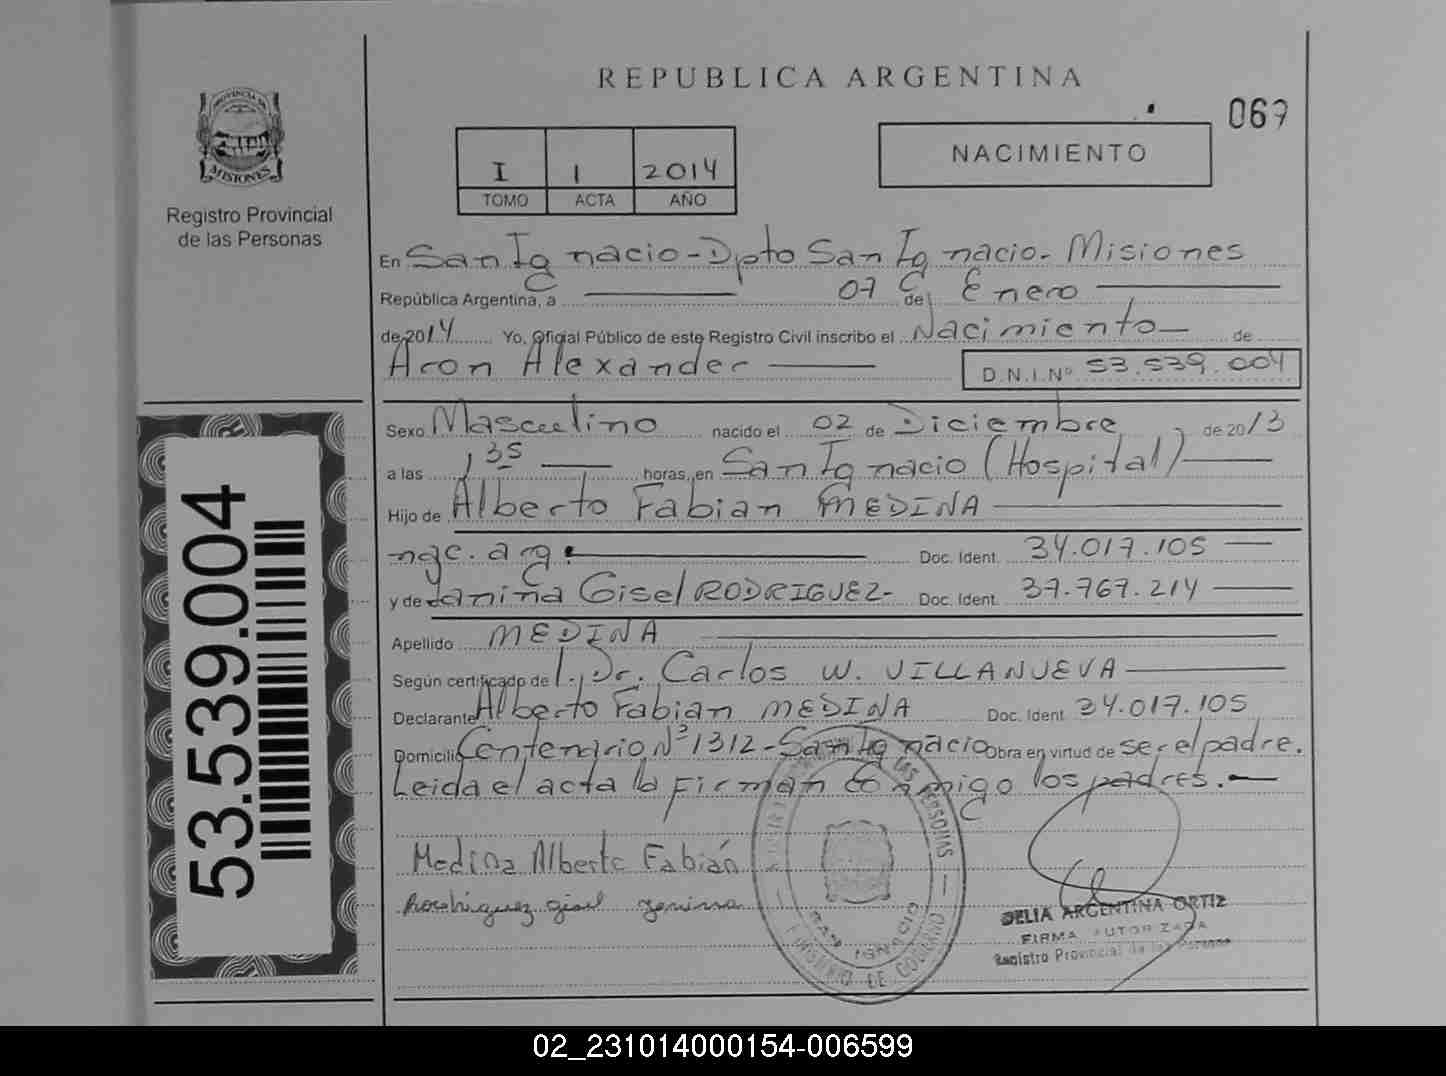 REPUBLICA ARGENTINA
069
PROVINCIA DE
MISIONES
Registro Provincial
de las Personas
I 1 2014
TOMO ACTA AÑO
NACIMIENTO
En San Ignacio - Dpto San Ignacio - Misiones
República Argentina, a 07 de Enero
de 2014 Yo, Oficial Público de este Registro Civil inscribo el Nacimiento de
Aron Alexander D.N.I.Nº 53.539.004
Sexo Masculino nacido el 02 de Diciembre de 2013
a las 1,35 horas, en San Ignacio (Hospital)
Hijo de Alberto Fabian MEDINA
nac. arg. Doc. Ident. 34.017.105
y de Janina Gisel RODRIGUEZ - Doc. Ident. 37.767.214
Apellido MEDINA
Según certificado de l., Dr. Carlos W. VILLANUEVA
Declarante Alberto Fabian MEDINA Doc. Ident 34.017.105
Domicilio Centenario Nº 1312 - San Ignacio Obra en virtud de ser el padre.
Leida el acta la firman conmigo los padres.
53.539.004
Medina Alberto Fabián
Rodriguez gisel Janina
LAS PERSONAS
SAN IGNACIO
MINISTERIO DE GOBIERNO
DELIA ARGENTINA ORTIZ
FIRMA AUTORIZADA
Registro Provincial de las Personas
02_231014000154-006599